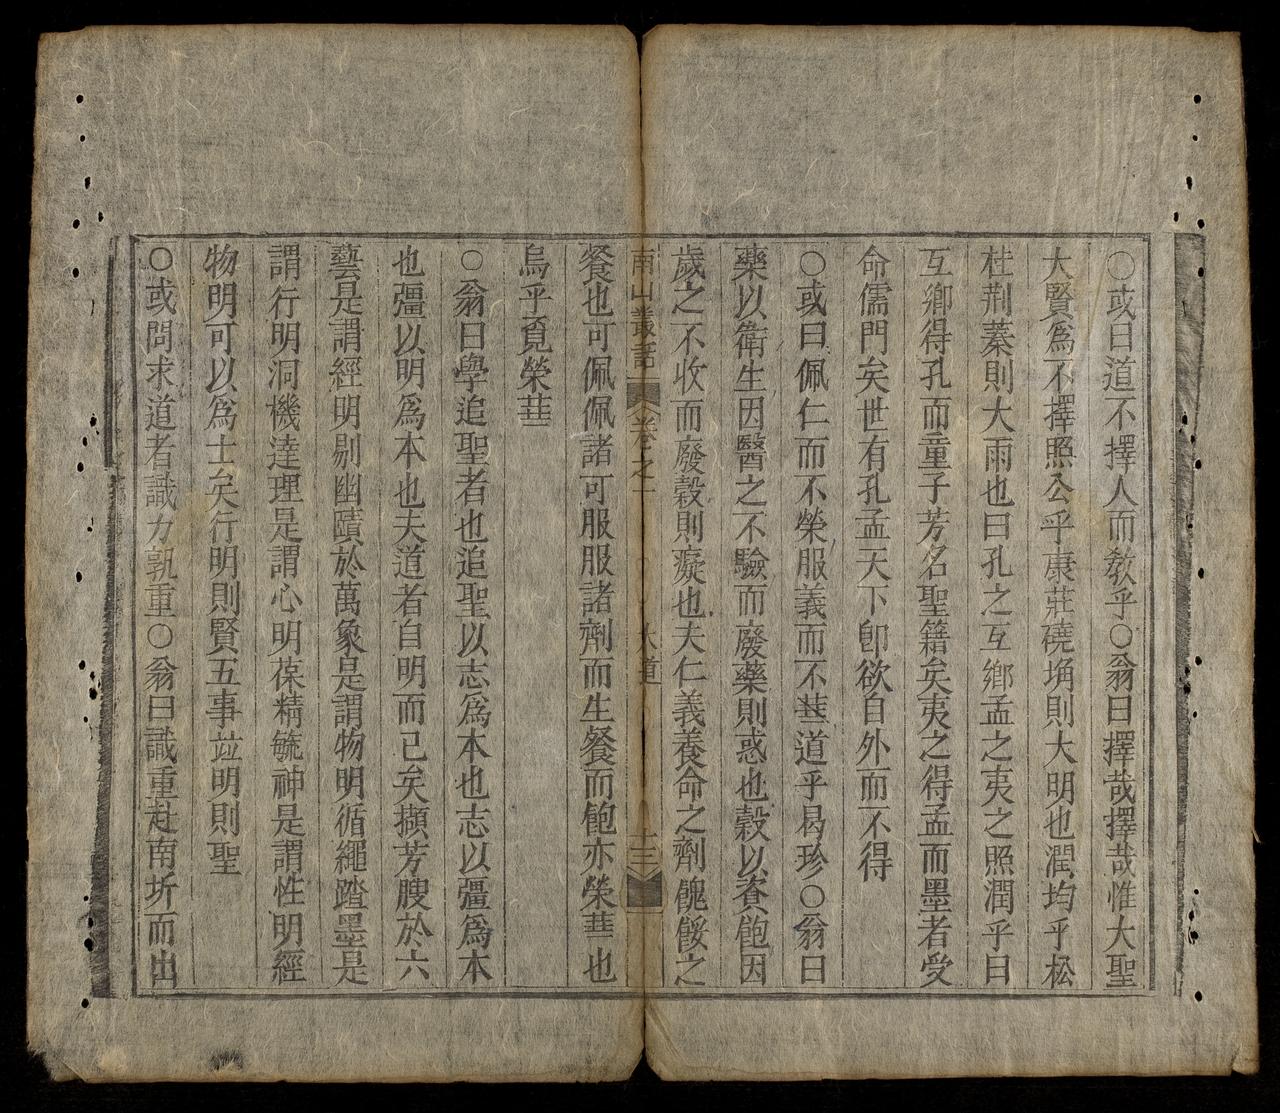 ○或曰道不擇人而敎乎○翁曰擇哉擇哉惟大聖
大賢爲不擇照公乎康莊磽埆則大明也潤均乎松
桂荆蓁則大雨也曰孔之互鄉孟之夷之照潤乎曰
互鄉得孔而童子芳名聖籍矣夷之得孟而墨者受
命儒門矣世有孔孟天下卽欲自外而不得
○或曰佩仁而不榮服義而不華道乎曷珍○翁曰
藥以衛生因醫之不驗而廢藥則惑也穀以賚飽因
歲之不收而廢穀則癡也夫仁義養命之劑餽餒之
南山叢話 卷之十 大道 十三
餐也可佩佩諸可服服諸劑而生餐而飽亦榮華也
烏乎覓榮華
○翁曰學追聖者也追聖以志爲本也志以彊爲本
也彊以明爲本也夫道者自明而已矣擷芳膄於六
藝是謂經明剔幽賾於萬象是謂物明循繩踏墨是
謂行明洞機達理是謂心明葆精毓神是謂性明經
物明可以爲士矣行明則賢五事竝明則聖
○或問求道者識力孰重○翁曰識重赴南圻而出